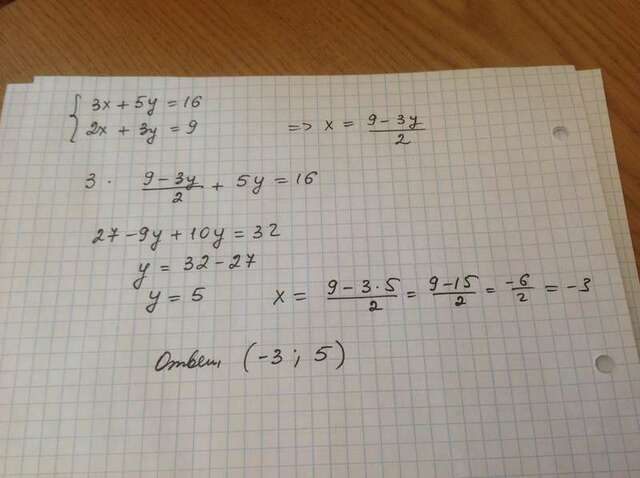 { 3x + 5y = 16
2x + 3y = 9 => x = (9 - 3y)/2
3 · (9 - 3y)/2 + 5y = 16
27 - 9y + 10y = 32
y = 32 - 27
y = 5 x = (9 - 3·5)/2 = (9 - 15)/2 = -6/2 = -3
Ответ (-3; 5)